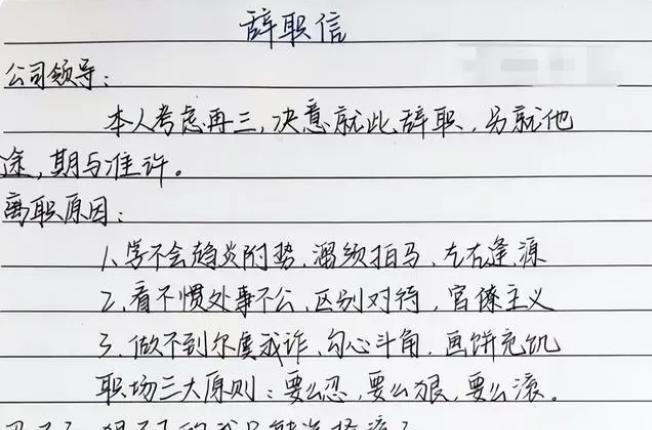 辞职信
公司领导：
本人考虑再三，决意就此辞职，另就他
途，期与准许。
离职原因：
1、学不会趋炎附势、溜须拍马、左右逢源
2、看不惯处事不公、区别对待，官僚主义
3、做不到尔虞我诈、勾心斗角、画饼充饥
职场三大原则：要么忍，要么狠，要么滚。